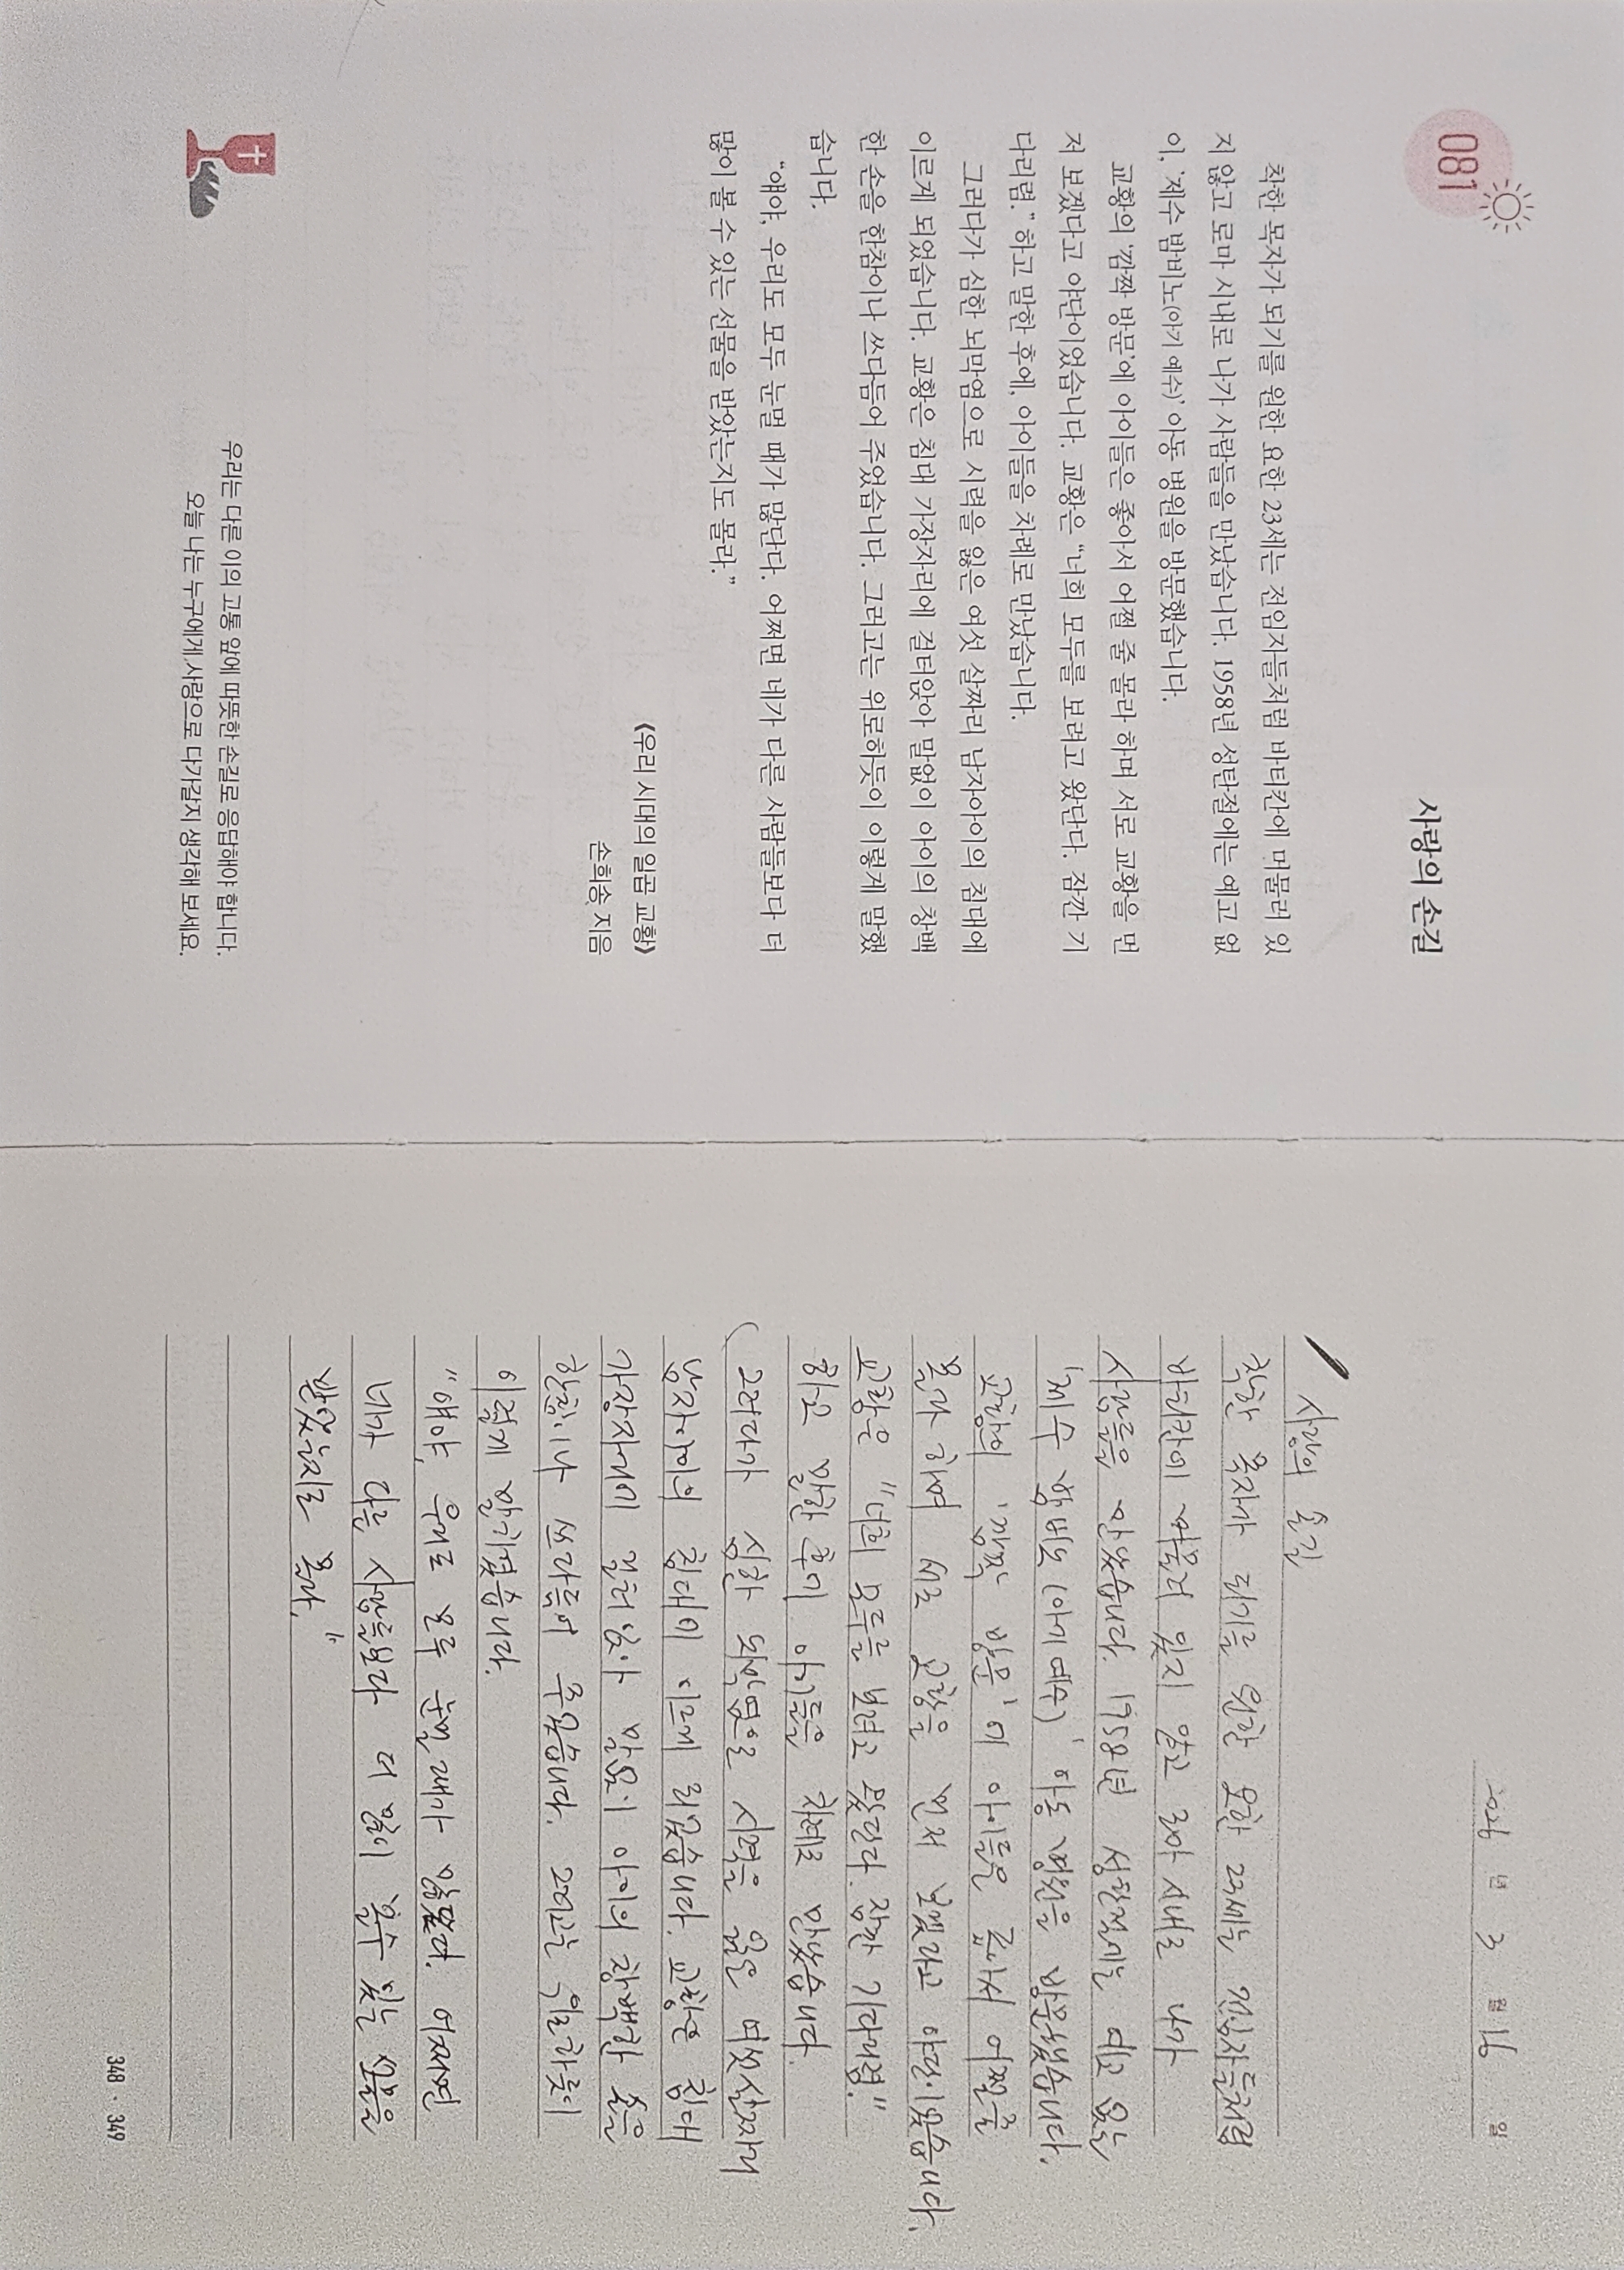 081
사랑의 손길
착한 목자가 되기를 원한 요한 23세는 전임자들처럼 바티칸에 머물러 있
지 않고 로마 시내로 나가 사람들을 만났습니다. 1958년 성탄절에는 예고 없
이, ‘제수 밤비노(아기 예수)’ 아동 병원을 방문했습니다.
교황의 ‘깜짝 방문’에 아이들은 좋아서 어쩔 줄 몰라 하며 서로 교황을 먼
저 보겠다고 야단이었습니다. 교황은 “너희 모두를 보려고 왔단다. 잠깐 기
다리렴.” 하고 말한 후에, 아이들을 차례로 만났습니다.
그러다가 심한 뇌막염으로 시력을 잃은 여섯 살짜리 남자아이의 침대에
이르게 되었습니다. 교황은 침대 가장자리에 걸터앉아 말없이 아이의 창백
한 손을 한참이나 쓰다듬어 주었습니다. 그러고는 위로하듯이 이렇게 말했
습니다.
“얘야, 우리도 모두 눈멀 때가 많단다. 어쩌면 네가 다른 사람들보다 더
많이 볼 수 있는 선물을 받았는지도 몰라.”
《우리 시대의 일꾼 교황》
손희송 지음
우리는 다른 이의 고통 앞에 따뜻한 손길로 응답해야 합니다.
오늘 나는 누구에게 사랑으로 다가갈지 생각해 보세요.
2026 년 3 월 16 일
사랑의 손길
착한 목자가 되기를 원한 요한 23세는 전임자들처럼
바티칸에 머물러 있지 않고 로마 시내로 나가
사람들을 만났습니다. 1958년 성탄절에는 예고 없는
‘제수 밤비노 (아기 예수)’ 아동 병원을 방문했습니다.
교황의 ‘깜짝 방문’에 아이들은 좋아서 어쩔줄
몰라 하며 서로 교황을 먼저 보겠다고 야단이었습니다.
교황은 “너희 모두를 보려고 왔단다. 잠깐 기다리렴.”
하고 말한 후에 아이들을 차례로 만났습니다.
그러다가 심한 뇌막염으로 시력을 잃은 여섯살짜리
남자아이의 침대에 이르게 되었습니다. 교황은 침대
가장자리에 걸터 앉아 말없이 아이의 창백한 손을
한참이나 쓰다듬어 주었습니다. 그러고는 위로하듯이
이렇게 말하였습니다.
“얘야, 우리도 모두 눈멀 때가 많단다. 어쩌면
네가 다른 사람들보다 더 많이 볼수 있는 을
받았는지도 몰라.”
348 · 349